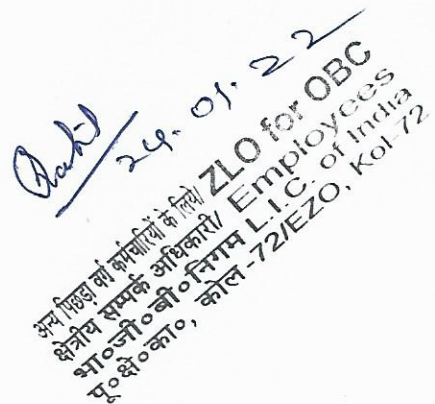 24.05.22
अन्य पिछड़ा वर्ग कर्मचारियों के लिये/ ZLO for OBC
क्षेत्रीय सम्पर्क अधिकारी/ Employees
भा०जी०बी०निगम L.I.C. of India
पू०क्षे०का०, कोल-72/EZO, Kol-72